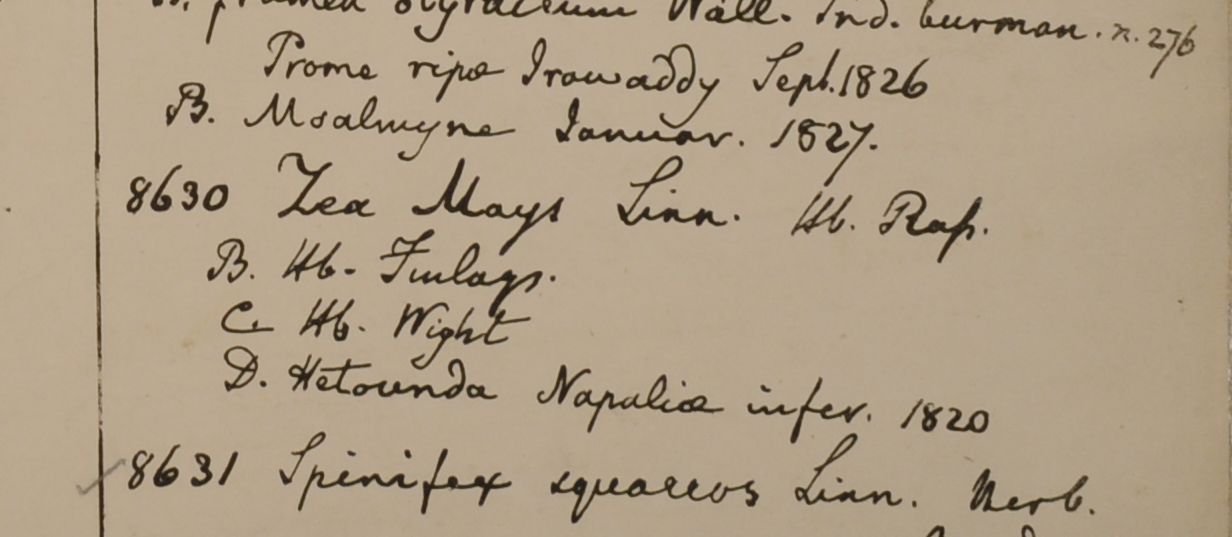 Wall. Ind. burman. n. 276
Prome ripæ Irawaddy Sept. 1826
B. Moalmyne Januar. 1827.
8630 Zea Mays Linn. Hb. Rap.
B. Hb. Finlays.
C. Hb. Wight
D. Hetounda Napaliæ infer. 1820
8631 Spinifex squarros Linn. Herb.